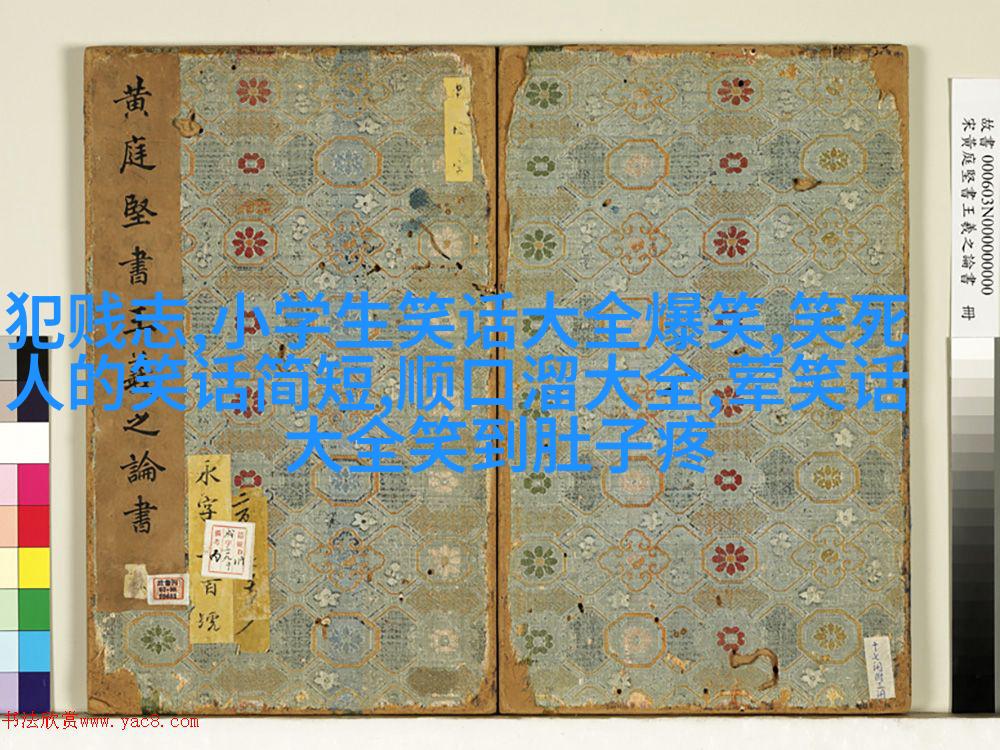 黄庭堅書王羲之論書
犯贱志,小学生笑话大全爆笑,笑死
人的笑话简短,顺口溜大全,荤笑话
大全笑到肚子疼
永字
百號
故書 000603N000000000
宋黃庭堅書王羲之論書 冊
书法欣赏www.yac8.com